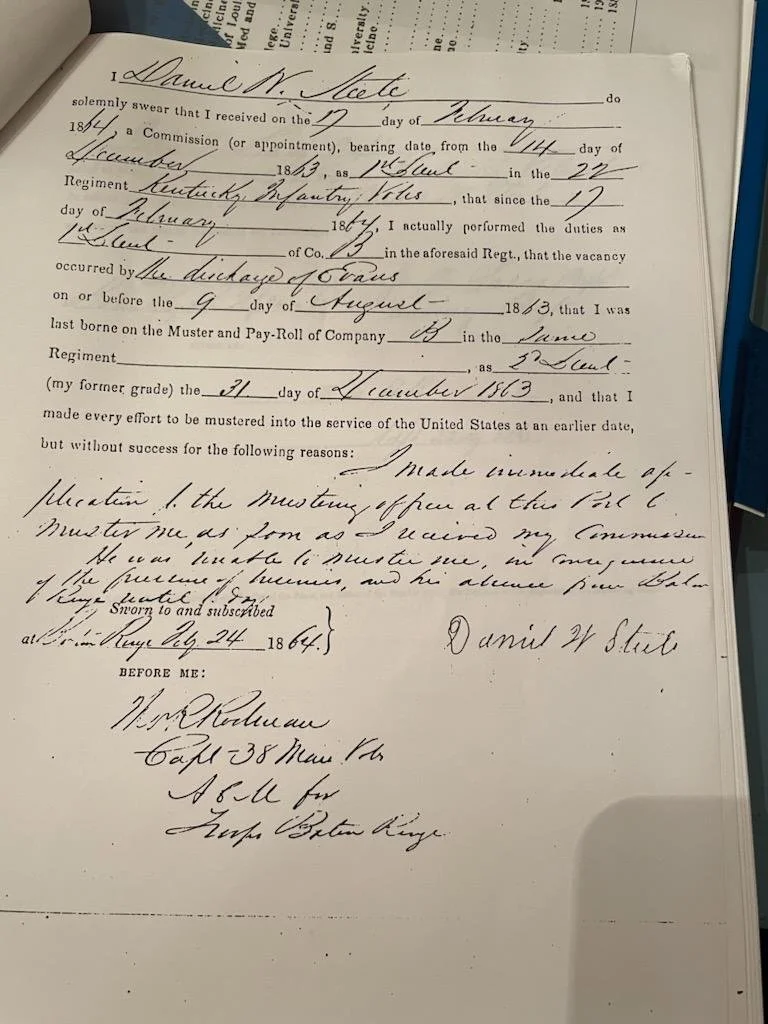 cine
icine
of Loui
Med and
ege
Univers
nd S.
iversity
icine
ne.
no.
ty.
I Daniel W. Steele do
solemnly swear that I received on the 17 day of February
1864, a Commission (or appointment), bearing date, from the 14 day of
December 1863, as 1st Lieut in the 22
Regiment Kentucky Infantry Vols, that since the 17
day of February 1864, I actually performed the duties as
1st Lieut of Co. B in the aforesaid Regt., that the vacancy
occurred by the discharge of Evans
on or before the 9 day of August 1863, that I was
last borne on the Muster and Pay-Roll of Company B in the Same
Regiment , as 2d Lieut
(my former grade) the 31 day of December 1863, and that I
made every effort to be mustered into the service of the United States at an earlier date,
but without success for the following reasons:
I made immediate ap-
plication to the mustering officer at this Post to
muster me, as soon as I received my Commission
He was unable to muster me, in consequence
of the pressure of business, and his absence from Baton
Rouge until to day
Sworn to and subscribed
at Baton Rouge Feby 24 1864.}
Daniel W Steele
BEFORE ME:
Capt 38 Mass Vols
A C M for
Troops Baton Rouge